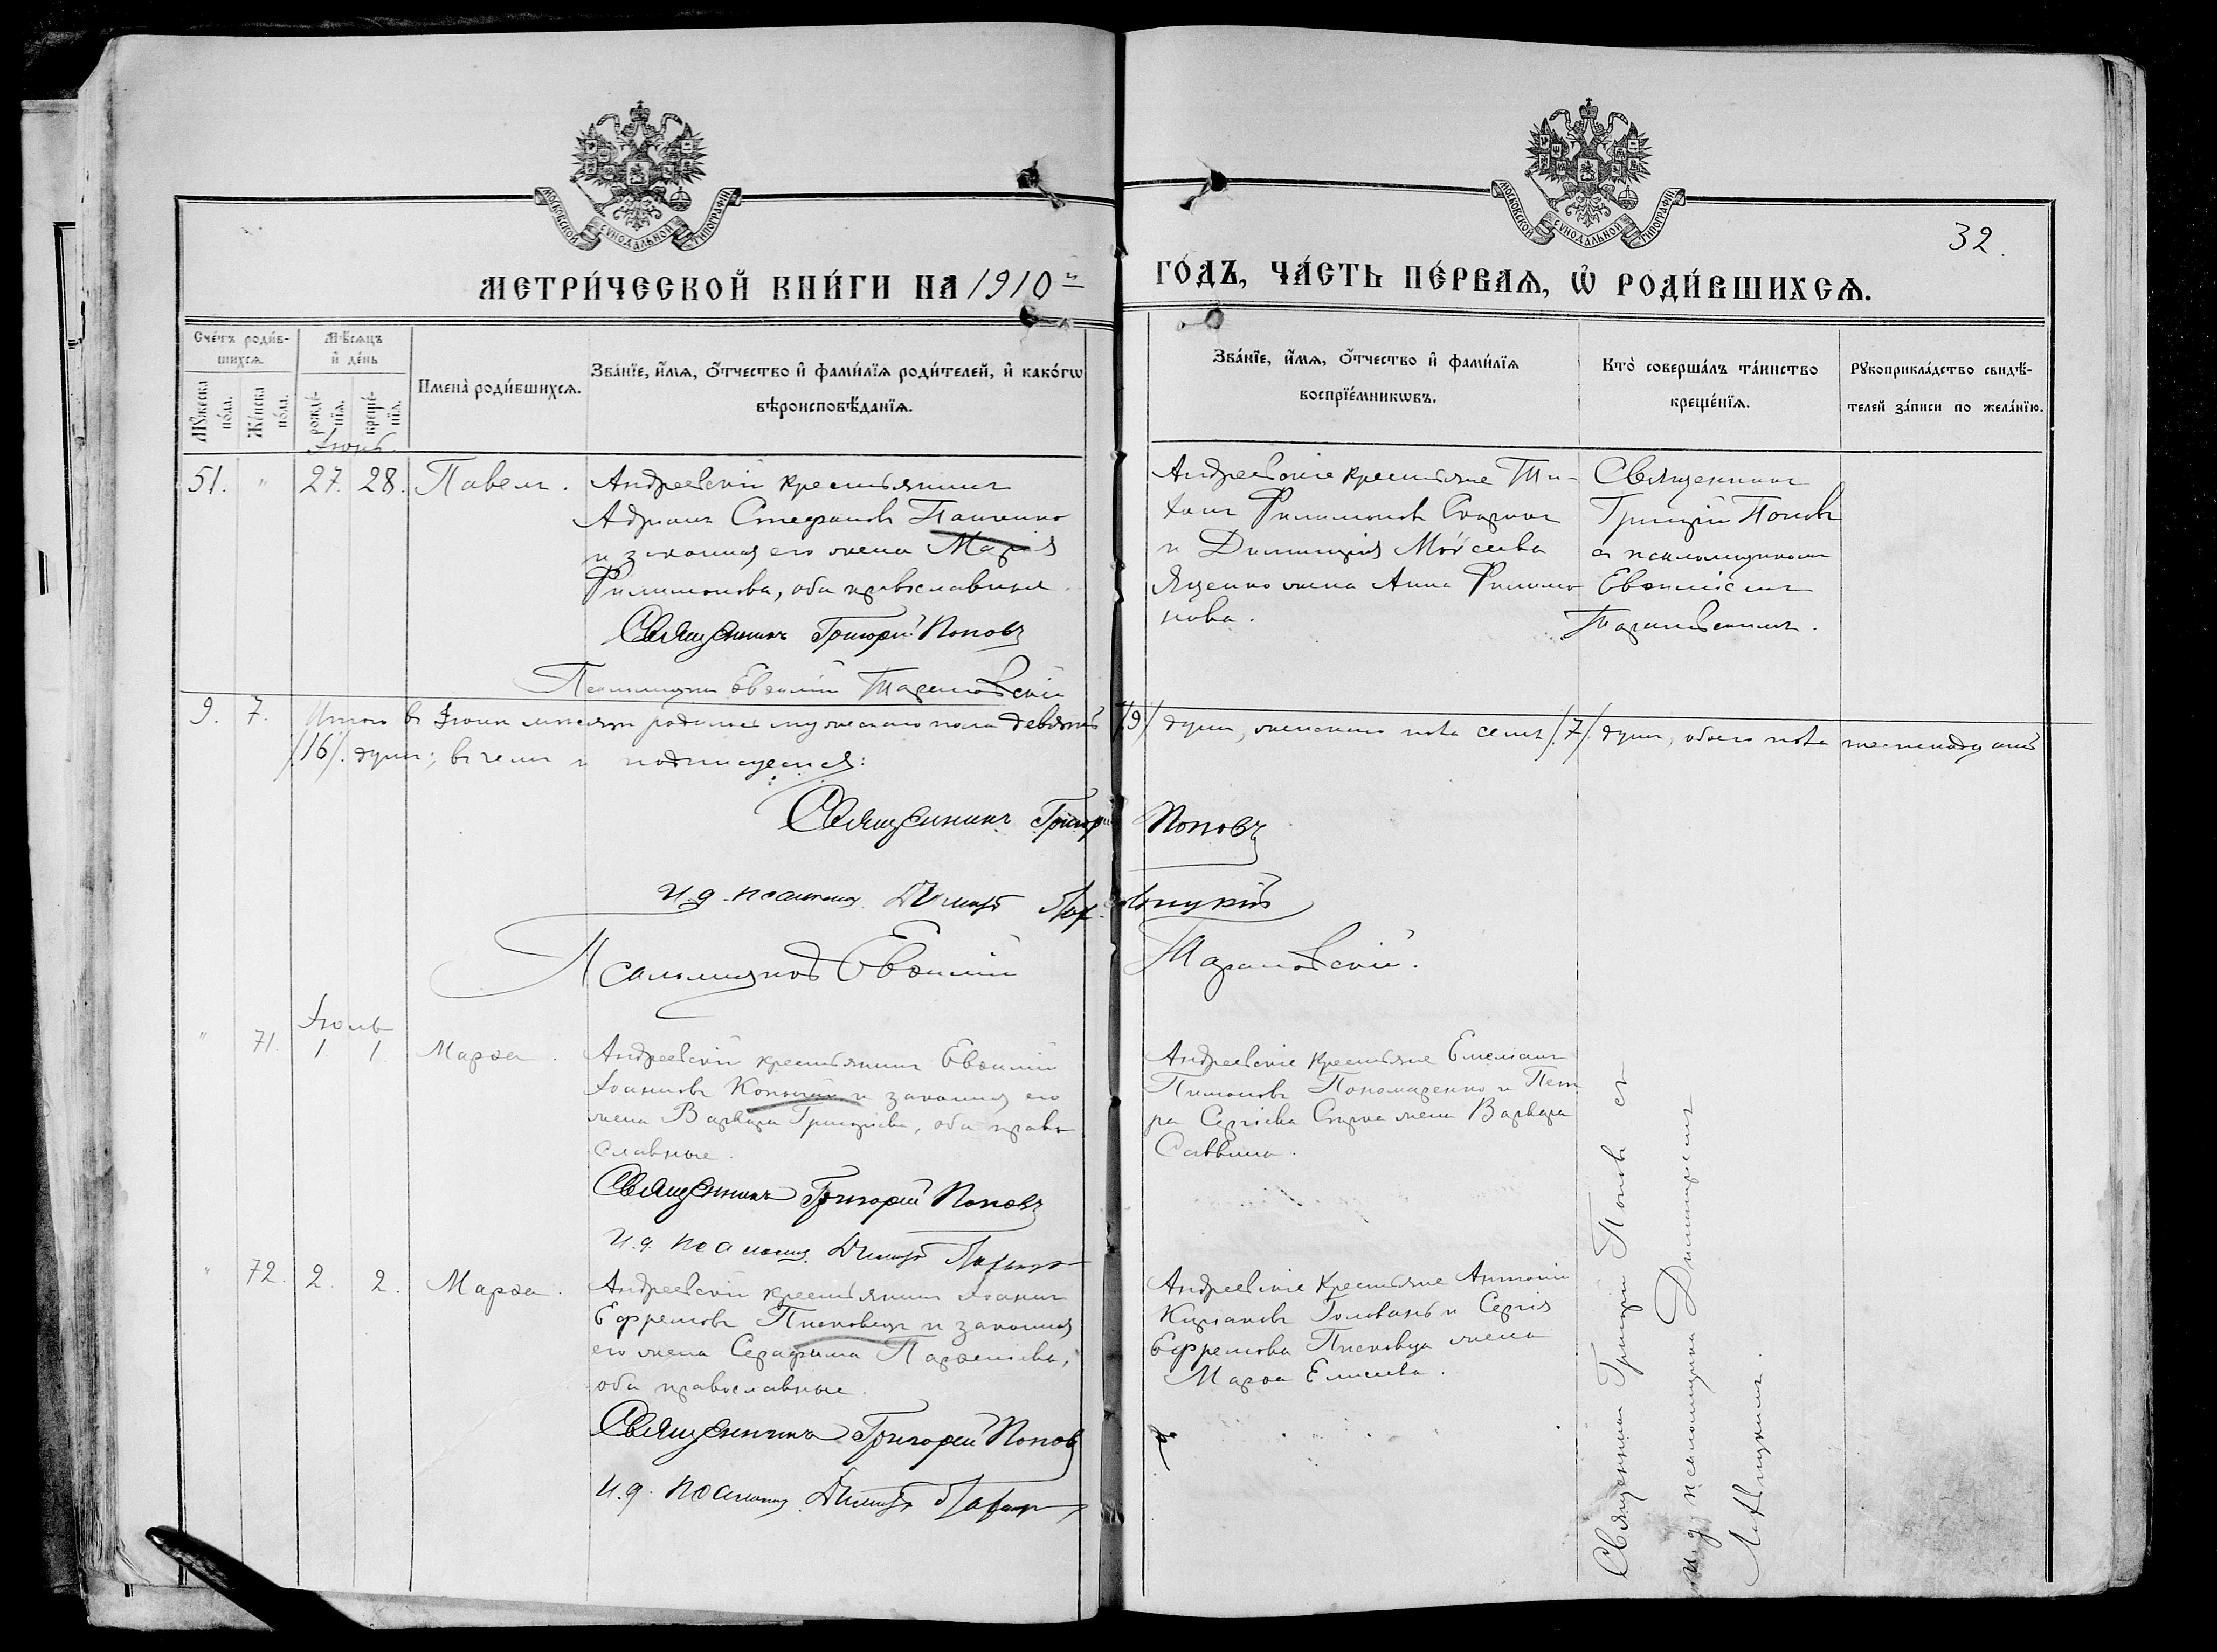 МОСКОВСКОЙ СѴНОДАЛЬНОЙ ТИПОГРАФІИ
МОСКОВСКОЙ СѴНОДАЛЬНОЙ ТИПОГРАФІИ
32.
МЕТРИ́ЧЕСКОЙ КНИ́ГИ НА 1910 й
ГО́ДЪ, ЧА́СТЬ ПЕ́РВАѦ, Ѡ҆ РОДИ́ВШИХСѦ.
Сче́тъ роди́в-
шихсѧ.
Мꙋ́жеска
по́ла.
Же́нска
по́ла.
Мѣ́сѧцъ
и҆ де́нь
рожде́-
нїѧ.
креще́-
нїѧ.
Имена̀ роди́вшихсѧ.
Зва́нїе, и҆́мѧ, Ѻ҆́тчество и҆ фами́лїѧ роди́телей, и҆ како́гѡ
вѣроисповѣ́данїѧ.
Зва́нїе, и҆́мѧ, Ѻ҆́тчество и҆ фами́лїѧ
воспрїе́мникѡвъ.
Кто̀ соверша́лъ та́инство
креще́нїѧ.
Рꙋкоприкла́дство свидѣ́-
телей за́писи по жела́нїю.
Іюнь.
51. " 27. 28. Павелъ.
Андреевскій крестьянинъ
Адріанъ Стефановъ Панченко
и законная его жена Марія
Филимонова, оба православные.
Священникъ Григорій Поповъ
Псаломщикъ Евѳимій Тарановскій
Андреевскіе крестьяне Ти-
хонъ Филимоновъ Скорикъ
и Димитрія Моѵсеева
Яценко жена Анна Филимо-
нова.
Священникъ
Григорій Поповъ
съ псаломщикомъ
Евѳиміемъ
Тарановскимъ.
9. 7. Итого въ Іюнѣ мѣсяцѣ родилось мужескаго пола девять /9/ душъ, женскаго пола семь /7/ душъ, обоего пола шестнадцать
/16/ душъ; въ чемъ и подписуемся:
Священникъ Григорій Поповъ
И.д. псаломщ. Димитр.
Псаломщикъ Евѳимій Тарановскій.
Іюль
" 71. 1. 1. Марѳа.
Андреевскій крестьянинъ Евѳимій
Іоанновъ и законная его
жена Варвара Григоріева, оба право-
славные.
Священникъ Григорій Поповъ
И.д. псаломщ. Димитр.
Андреевскіе крестьяне Емеліанъ
Пимоновъ Пономаренко и Пет-
ра Сергіева жена Варвара
Саввина.
" 72. 2. 2. Марѳа.
Андреевскій крестьянинъ Іоаннъ
Ефремовъ Писковецъ и законная
его жена Серафима Парѳеніева,
оба православные.
Священникъ Григорій Поповъ
И.д. псаломщ. Димитр.
Андреевскіе крестьяне Антоній
Киріаковъ Головань и Сергія
Ефремова Писковца жена
Марѳа Елисеева.
Священникъ Григорій Поповъ съ
и.д. псаломщика Димитріемъ